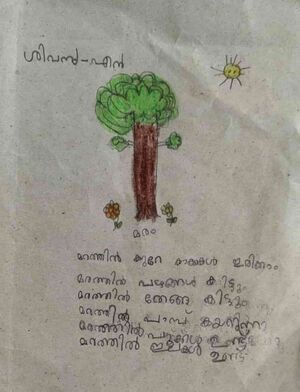 ശിവന്ധ-എൻ
മരം
മരത്തിൻ കുറേ കാക്കകൾ ഇരിണം
മരത്തിൻ പഴങ്ങൾ കിട്ടും
മരത്തിൻ തേങ്ങ കിട്ടും
മരത്തിൽ പാമ്പ് കയറുന്നു
മരത്തിൽ പൂക്കൾ ഉണ്ട്
മരത്തിൽ ഇലകൾ ഉണ്ട്